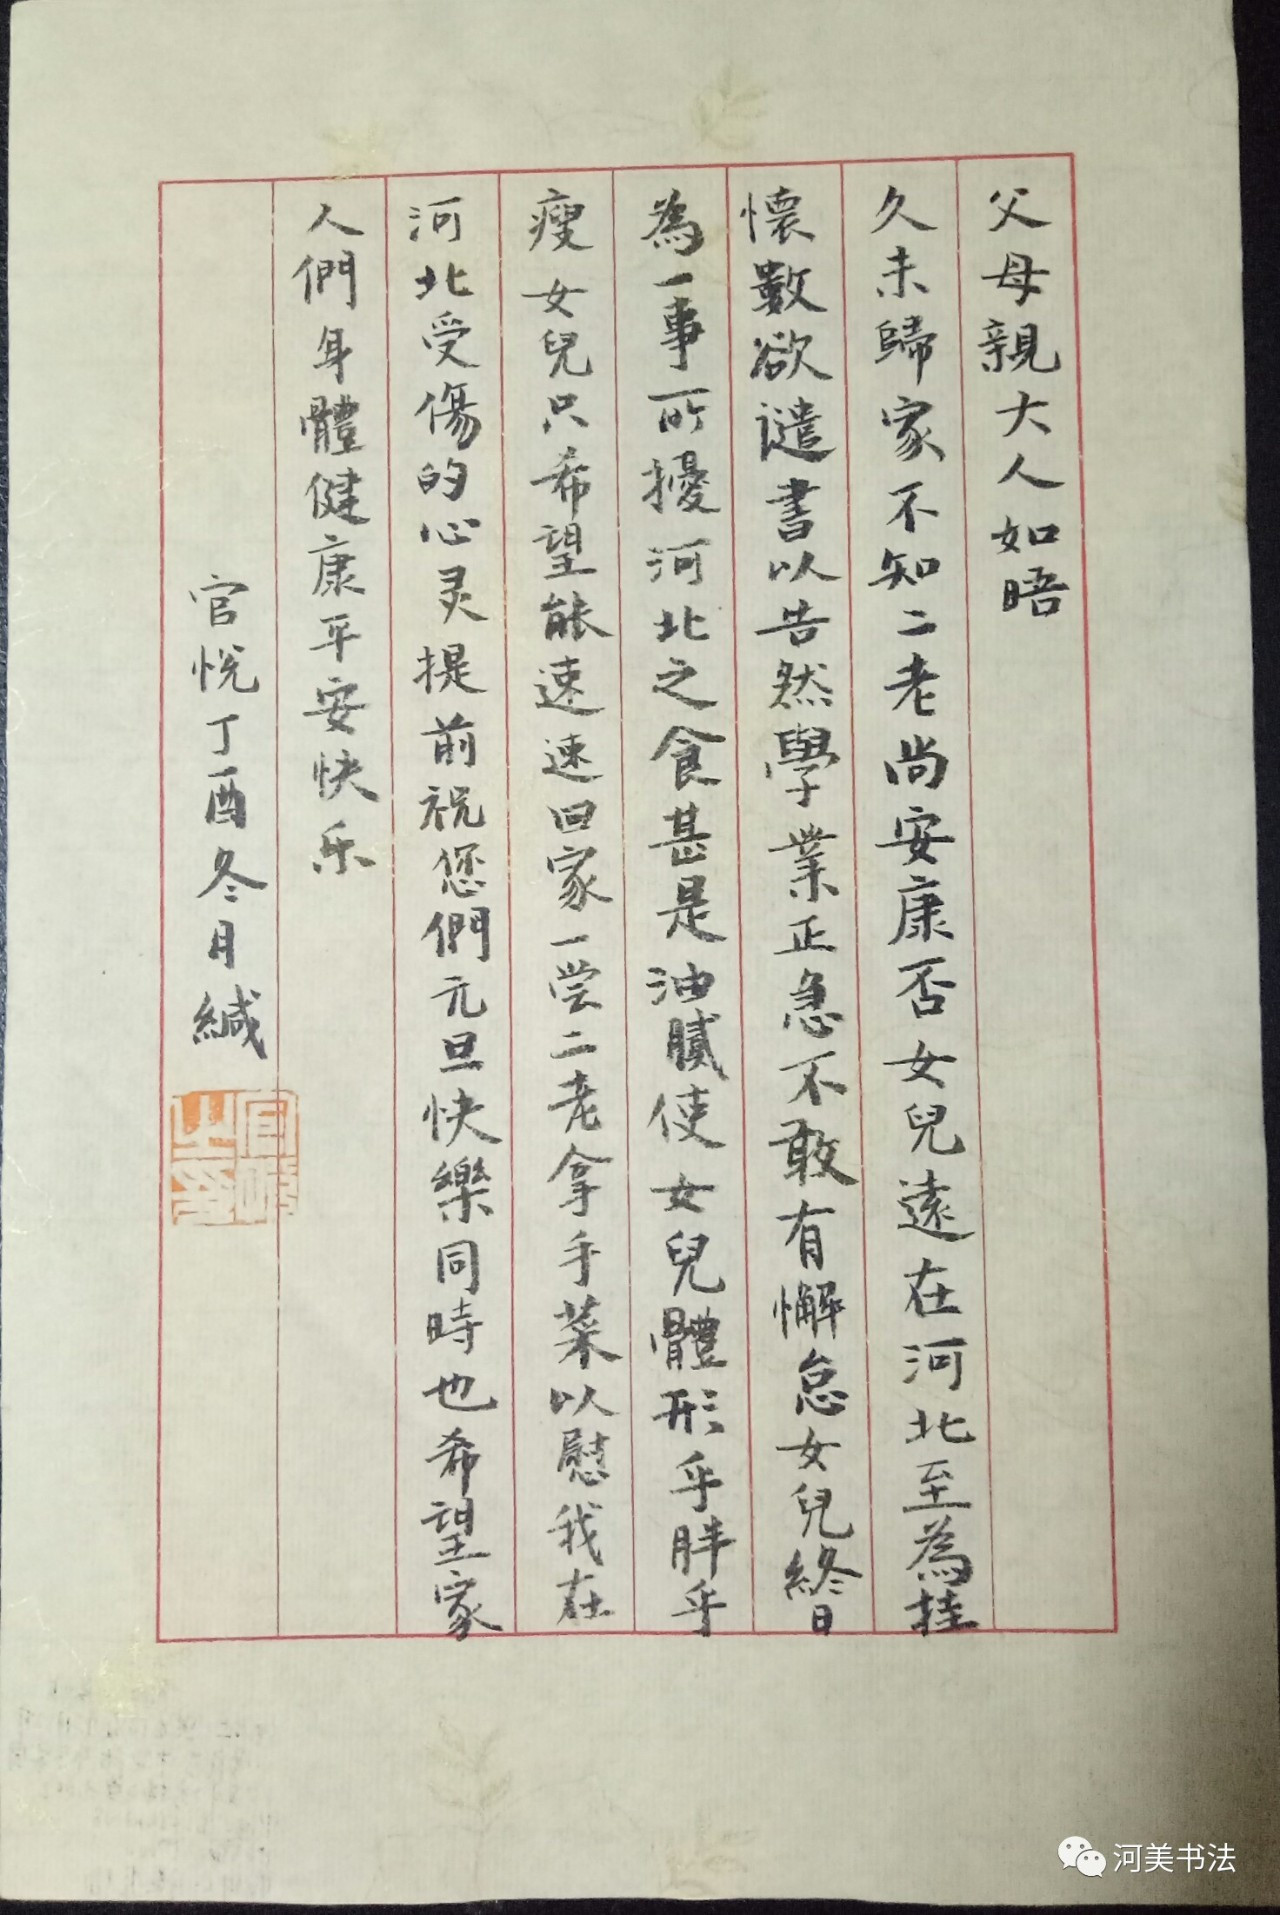 父母親大人如晤
久未歸家不知二老尚安康否女兒遠在河北至為挂
懷數欲譴書以告然學業正急不敢有懈怠女兒終日
為一事所擾河北之食甚是油膩使女兒體形乎胖乎
瘦女兒只希望能速速回家一尝二老拿手菜以慰我在
河北受傷的心灵提前祝您們元旦快樂同時也希望家
人們身體健康平安快乐
官悦丁酉冬月緘
河美书法